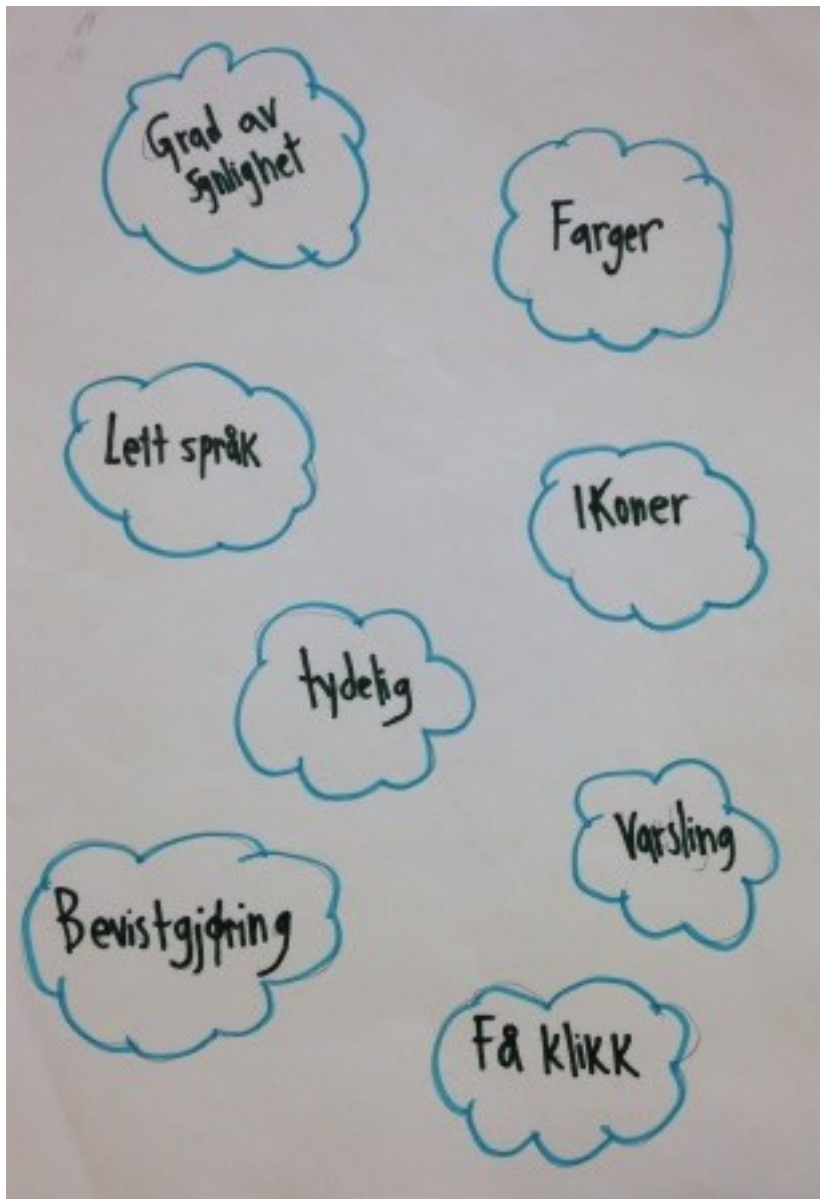 Grad av
synlighet
Farger
Lett språk
Ikoner
tydelig
Varsling
Bevistgjøring
Få klikk